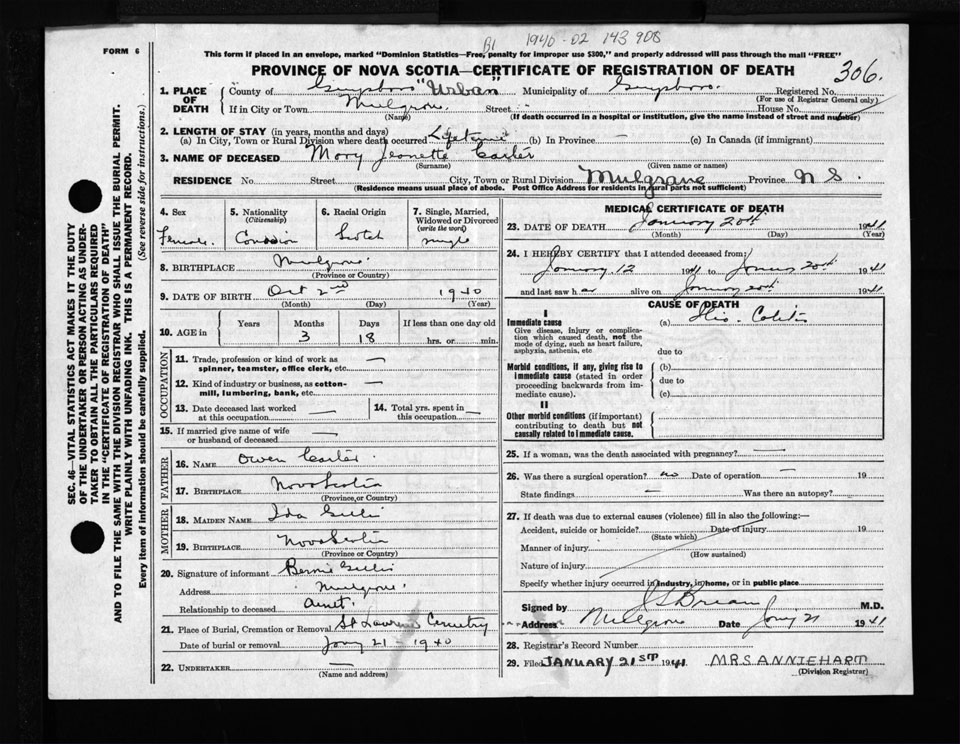 B1 1940-02 143 908
FORM 6
This form if placed in an envelope, marked "Dominion Statistics—Free, penalty for improper use $300," and properly addressed will pass through the mail "FREE"
PROVINCE OF NOVA SCOTIA—CERTIFICATE OF REGISTRATION OF DEATH 306.
1. PLACE OF DEATH County of Guysboro "Urban" Municipality of Guysboro. Registered No.
(For use of Registrar General only)
If in City or Town Mulgrave Street House No.
(Name) (If death occurred in a hospital or institution, give the name instead of street and number)
2. LENGTH OF STAY (in years, months and days)
(a) In City, Town or Rural Division where death occurred Lifetime (b) In Province — (c) In Canada (if immigrant)
3. NAME OF DECEASED Mary Jeanette Carter
(Surname) (Given name or names)
RESIDENCE No. Street City, Town or Rural Division Mulgrave Province N S.
(Residence means usual place of abode. Post Office Address for residents in rural parts not sufficient)
4. Sex Female.
5. Nationality (Citizenship) Canadian
6. Racial Origin Scotch
7. Single, Married, Widowed or Divorced (write the word) single
8. BIRTHPLACE Mulgrave.
(Province or Country)
9. DATE OF BIRTH Oct 2nd 1940
(Month) (Day) (Year)
10. AGE in Years Months Days If less than one day old
3 18 hrs. or min.
OCCUPATION
11. Trade, profession or kind of work as spinner, teamster, office clerk, etc. —
12. Kind of industry or business, as cotton-mill, lumbering, bank, etc. —
13. Date deceased last worked at this occupation —
14. Total yrs. spent in this occupation —
15. If married give name of wife or husband of deceased —
FATHER
16. NAME Owen Carter
17. BIRTHPLACE Nova Scotia
(Province, or Country)
MOTHER
18. MAIDEN NAME Ida Gillis
19. BIRTHPLACE Nova Scotia
(Province or Country)
20. Signature of informant Bernie Gillis
Address Mulgrave.
Relationship to deceased Aunt.
21. Place of Burial, Cremation or Removal St Lawrence Cemetry
Date of burial or removal Jany 21 - 1940
22. UNDERTAKER —
(Name and address)
MEDICAL CERTIFICATE OF DEATH
23. DATE OF DEATH January 20th 1941
(Month) (Day) (Year)
24. I HEREBY CERTIFY that I attended deceased from:
January 12 1941 to 20th 1941
and last saw her alive on January 20th 1941
CAUSE OF DEATH
I
Immediate cause (a) Colitis
Give disease, injury or complication which caused death, not the mode of dying, such as heart failure, asphyxia, asthenia, etc due to
Morbid conditions, if any, giving rise to immediate cause (stated in order proceeding backwards from immediate cause). (b)
due to
(c)
II
Other morbid conditions (if important) contributing to death but not causally related to immediate cause.
25. If a woman, was the death associated with pregnancy? —
26. Was there a surgical operation? no Date of operation — 19
State findings — Was there an autopsy?
27. If death was due to external causes (violence) fill in also the following:—
Accident, suicide or homicide? Date of injury 19
(State which)
Manner of injury
(How sustained)
Nature of injury
Specify whether injury occurred in industry, in home, or in public place
Signed by M.D.
Address Mulgrave Date Jany 21 1941
28. Registrar's Record Number
29. Filed JANUARY 21ST 1941 MRS ANNIE HART
(Division Registrar)
SEC. 46—VITAL STATISTICS ACT MAKES IT THE DUTY
OF THE UNDERTAKER OR PERSON ACTING AS UNDER-
TAKER TO OBTAIN ALL THE PARTICULARS REQUIRED
IN THE "CERTIFICATE OF REGISTRATION OF DEATH"
AND TO FILE THE SAME WITH THE DIVISION REGISTRAR WHO SHALL ISSUE THE BURIAL PERMIT.
WRITE PLAINLY WITH UNFADING INK. THIS IS A PERMANENT RECORD.
Every item of information should be carefully supplied. (See reverse side for instructions.)